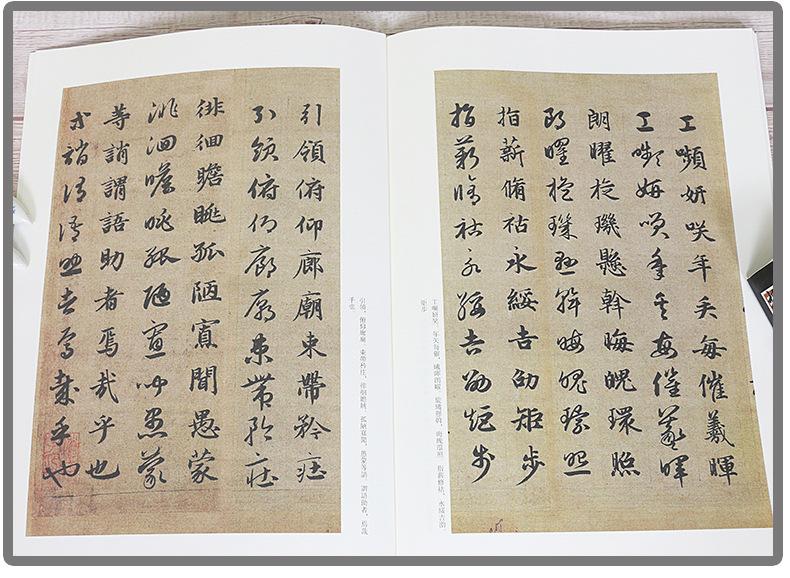 工嚬妍咲年矢每催羲暉
工嚬妍咲年矢每催羲暉
朗曜旋璣懸斡晦魄環照
朗曜旋璣懸斡晦魄環照
指薪脩祜永綏吉劭矩步
指薪脩祜永綏吉劭矩步
工嚬妍笑，年矢每催，曦暉朗曜，旋璣懸斡，晦魄環照，指薪修祜，永綏吉劭，
矩步
引領俯仰廊廟束帶矜莊
引領俯仰廊廟束帶矜莊
徘徊瞻眺孤陋寡聞愚蒙
徘徊瞻眺孤陋寡聞愚蒙
等誚謂語助者焉哉乎也
等誚謂語助者焉哉乎也
引領，俯仰廊廟，束帶矜莊，徘徊瞻眺，孤陋寡聞，愚蒙等誚，謂語助者，焉哉
乎也